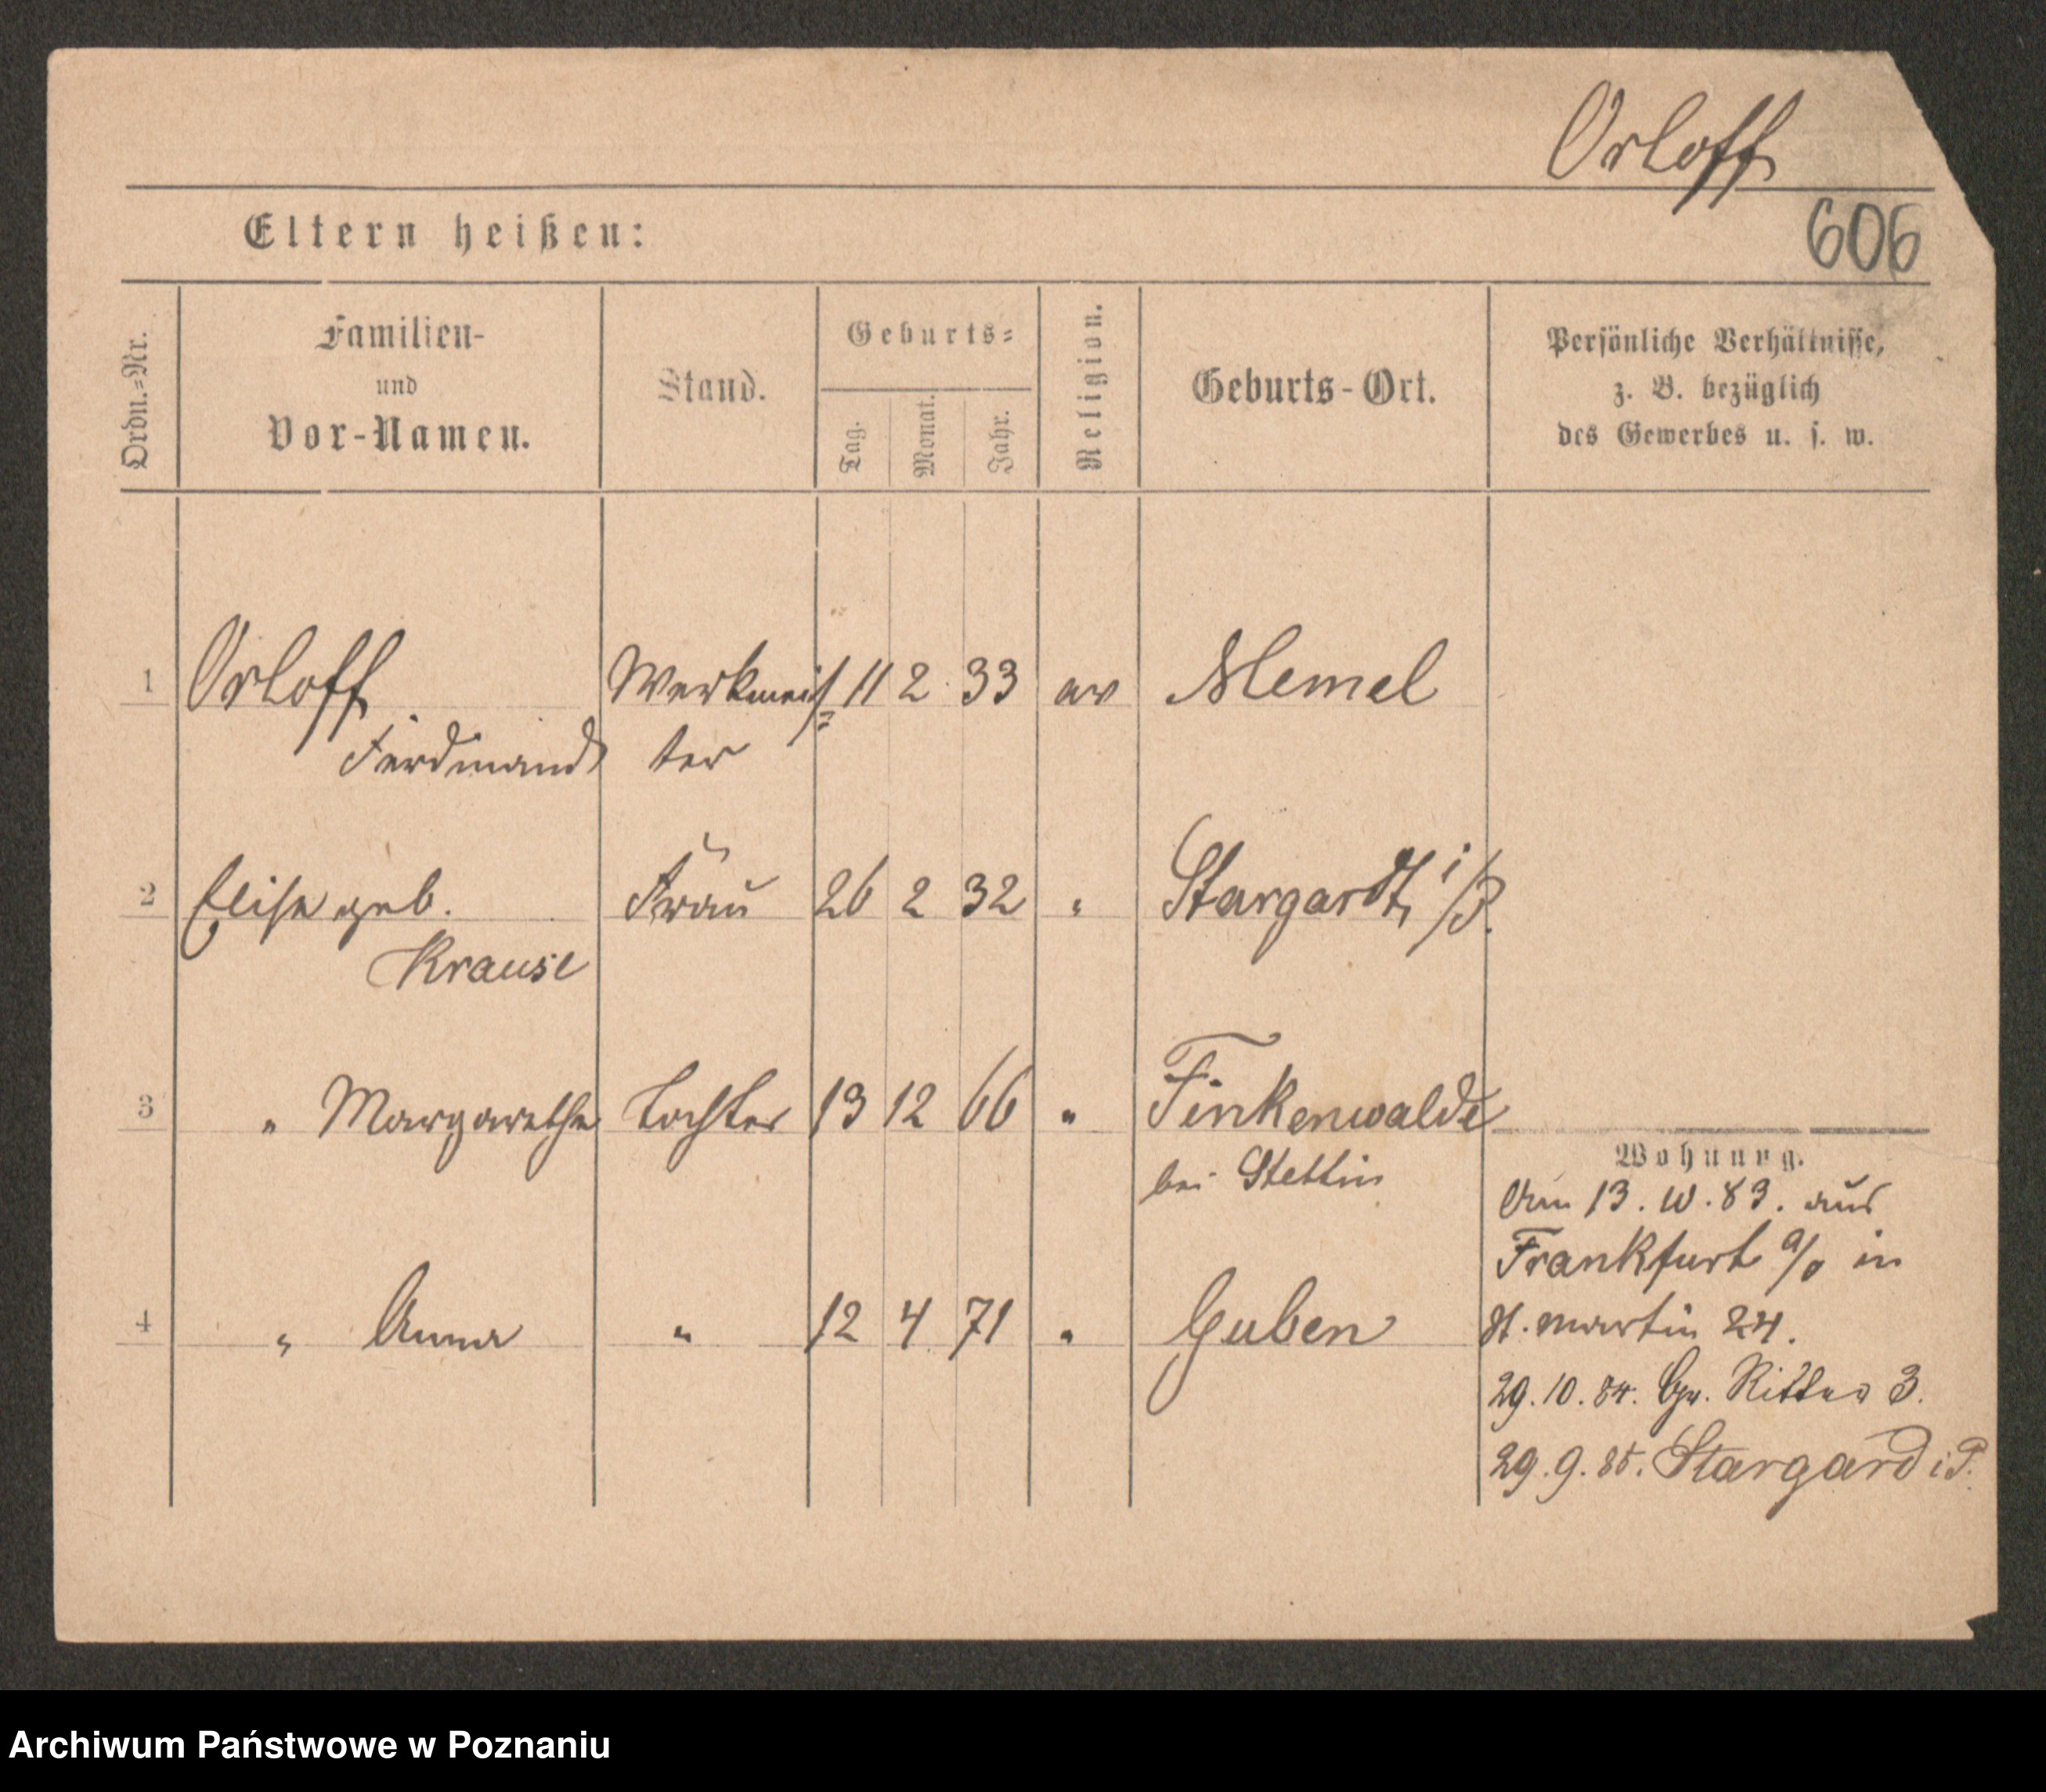 Orloff
606
Eltern heißen:
Ordn.=Nr.
Familien-
und
Vor-Namen.
Stand.
Geburts=
Tag.
Monat.
Jahr.
Religion.
Geburts-Ort.
Persönliche Verhältnisse,
z. B. bezüglich
des Gewerbes u. s. w.
1 Orloff Werkmeis= 11 2 33 ev Memel
Ferdinand ter
2 Elise geb. Frau 26 2 32 " Stargardt i/P.
Krause
3 " Margarethe Tochter 13 12 66 " Finkenwalde
bei Stettin
Wohnung.
Am 13. 10. 83. aus
Frankfurt a/O in
4 " Anna " 12 4 71 " Guben
St. Martin 24.
29.10.84. Gr. Ritter 3.
29.9.85. Stargard i P.
Archiwum Państwowe w Poznaniu